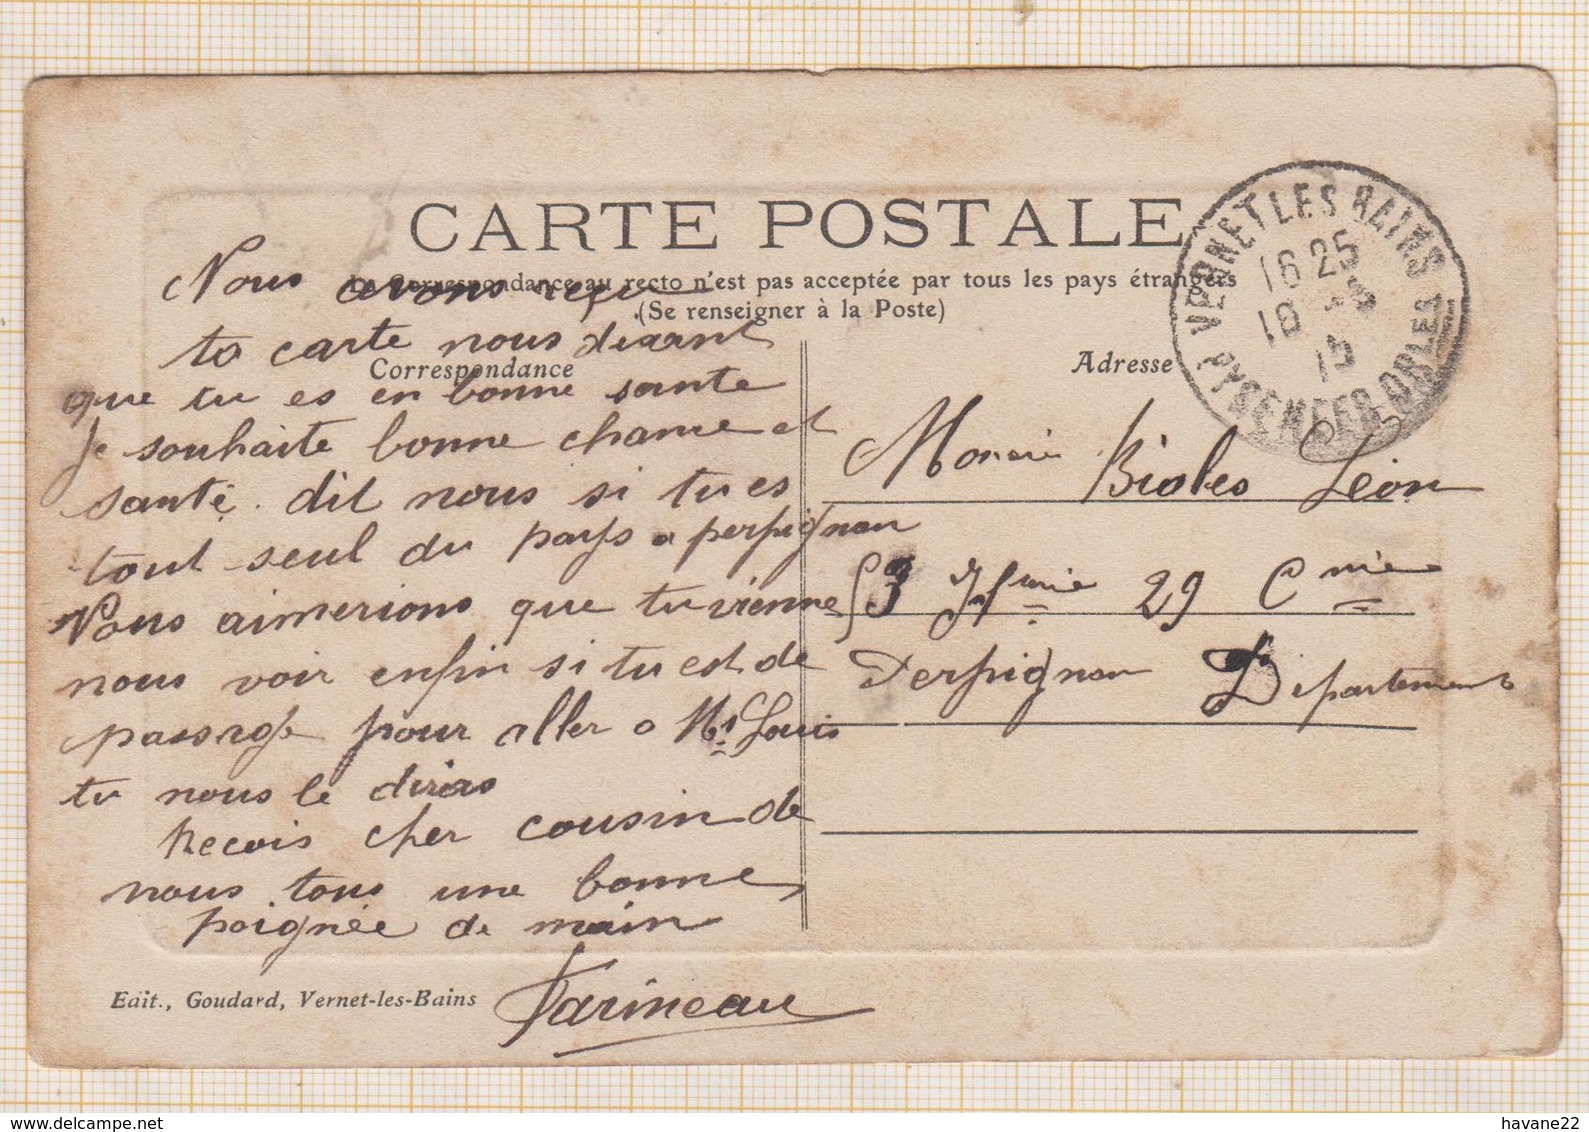 CARTE POSTALE
La Correspondance au recto n'est pas acceptée par tous les pays étrangers
(Se renseigner à la Poste)
Correspondance
Nous avons reçu
ta carte nous disant
que tu es en bonne sante
Je souhaite bonne chance et
santé. dit nous si tu es
tout seul du pays a perpignan
Nous aimerions que tu vienne
nous voir enfin si tu est de
passage pour aller a Mt Louis
tu nous le diras
Recois cher cousin de
nous tous une bonne
poignée de main
Farineau
Edit., Goudard, Vernet-les-Bains
Adresse
VERNET LES BAINS
16 25
PYRENEES ORLES
Monsieur Bioles Léon
53 Iferie 29 Cnie
Perpignan Departement
delcampe.net
havane22